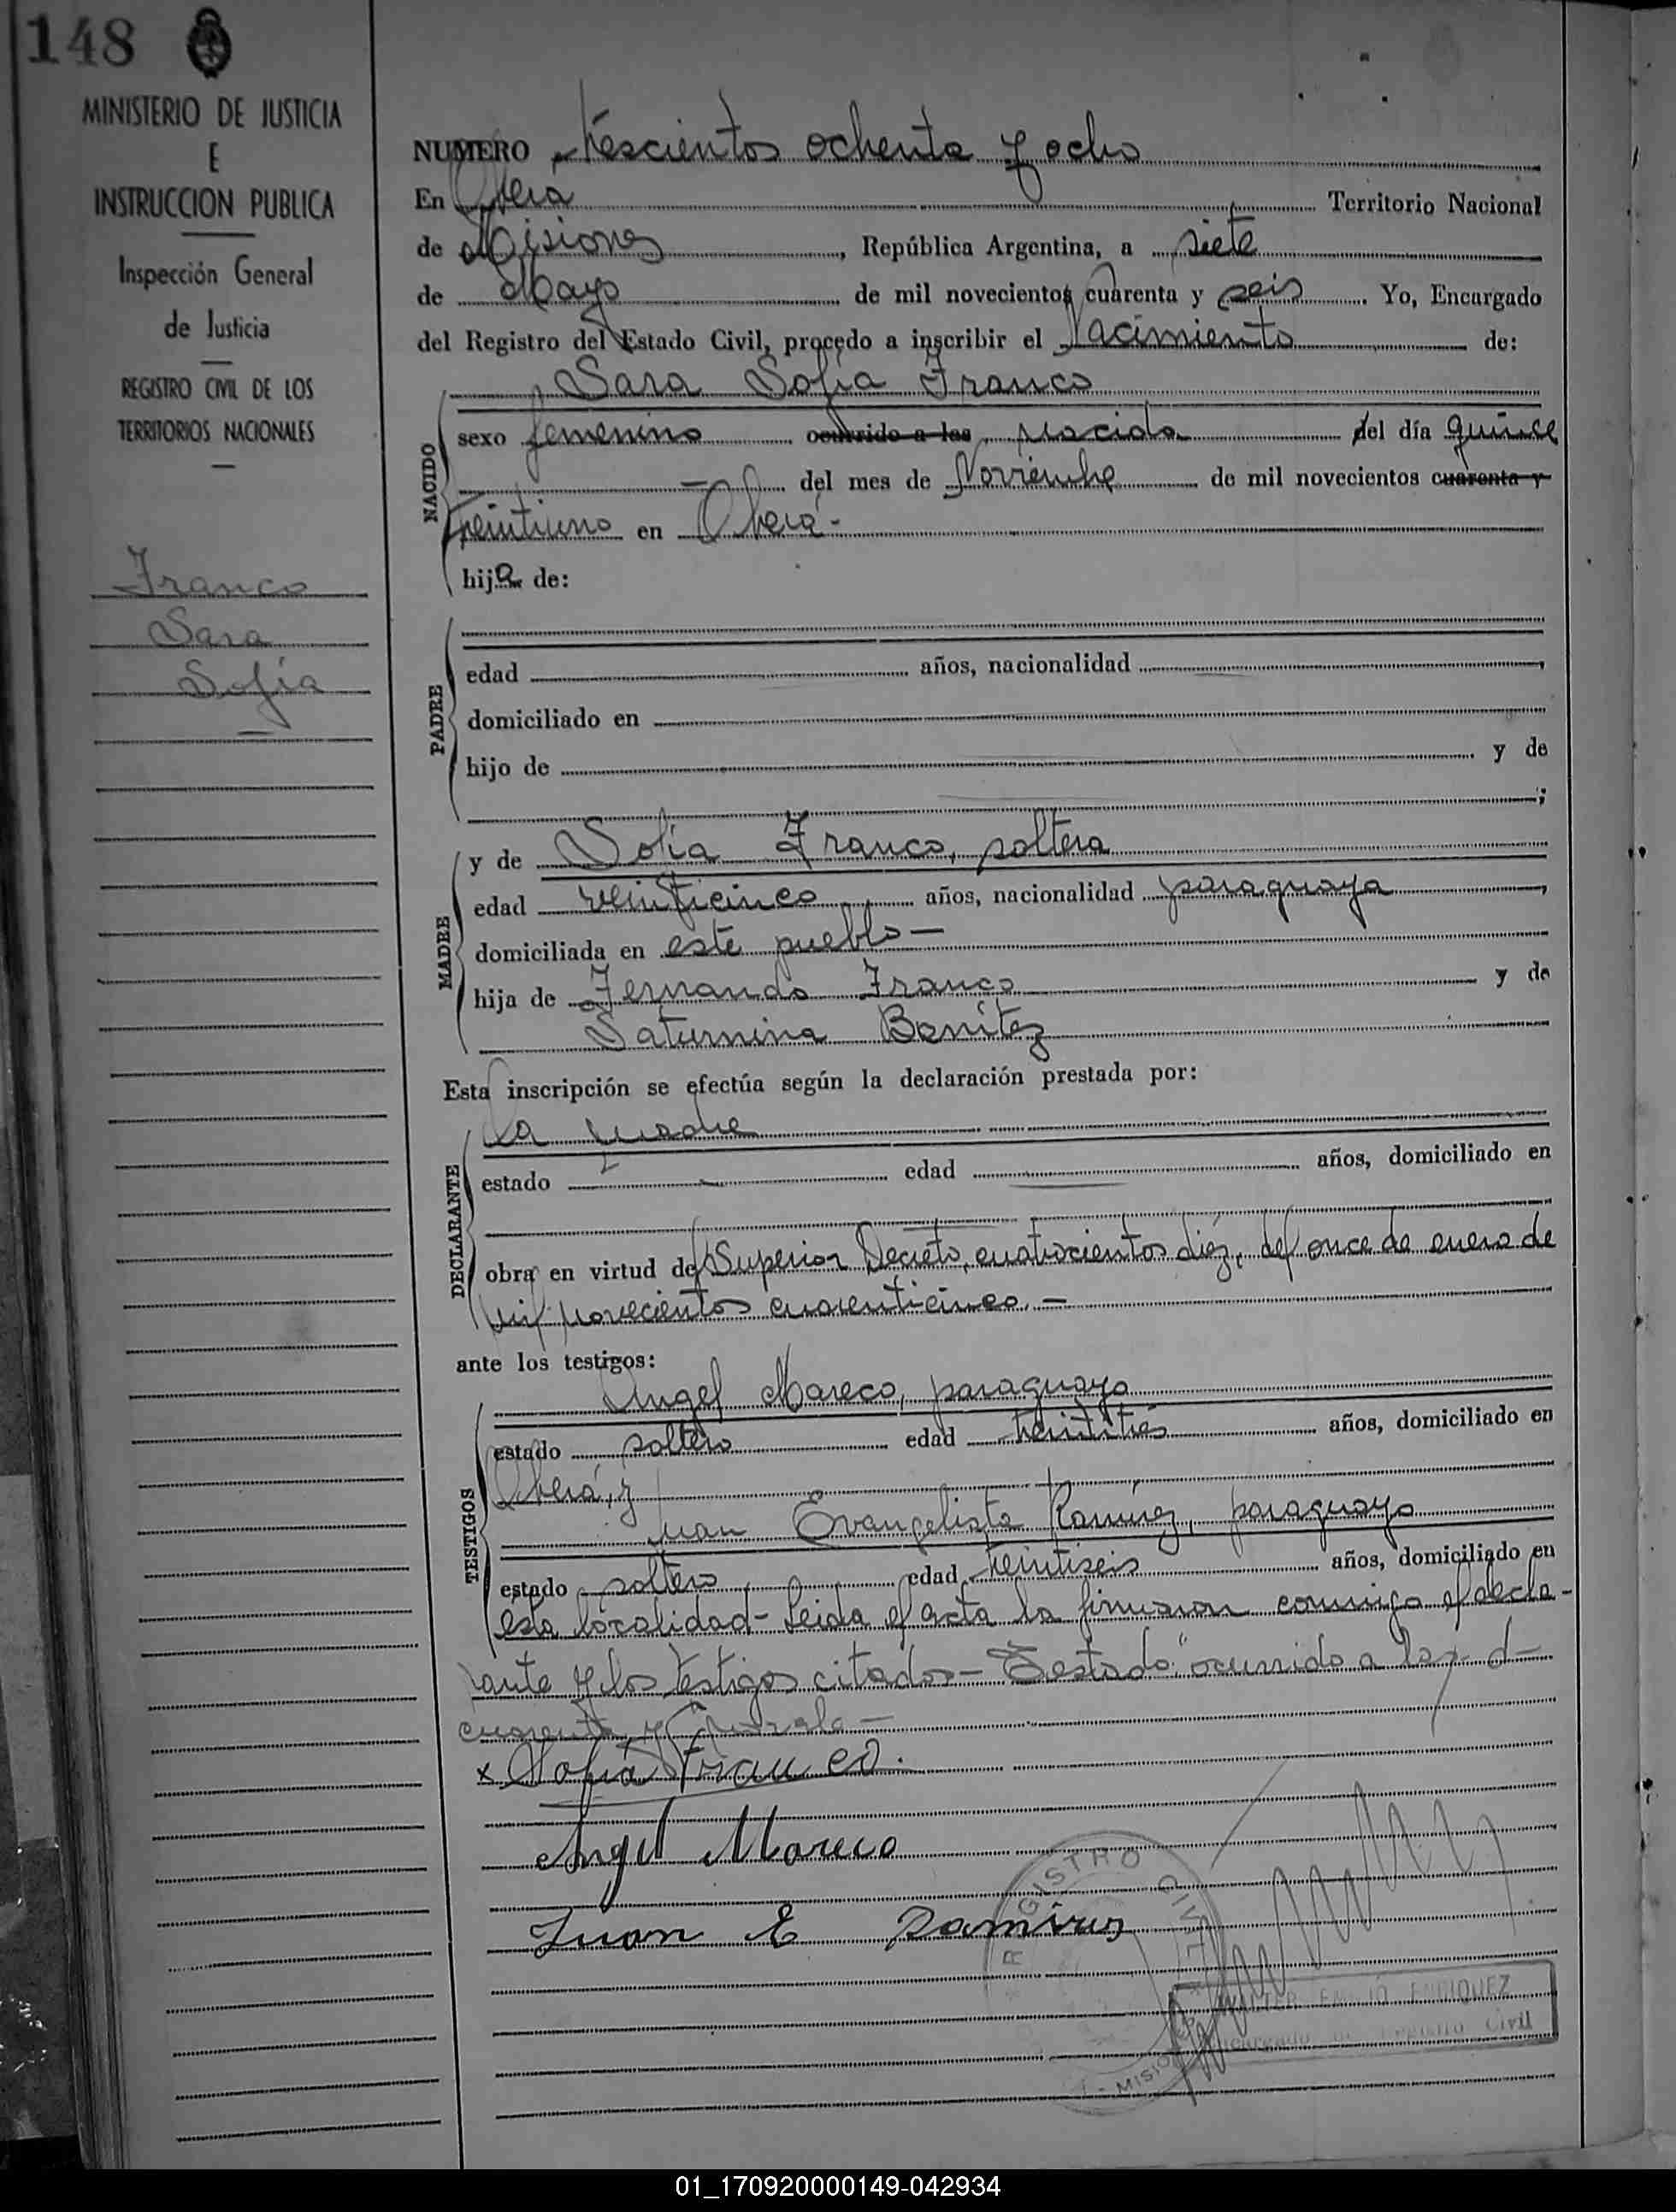 148
MINISTERIO DE JUSTICIA
E
INSTRUCCION PUBLICA
Inspección General
de Justicia
REGISTRO CIVIL DE LOS
TERRITORIOS NACIONALES
Franco
Sara
Sofía
NUMERO trescientos ochenta y ocho
En Oberá Territorio Nacional
de Misiones, República Argentina, a siete
de Mayo de mil novecientos cuarenta y seis. Yo, Encargado
del Registro del Estado Civil, procedo a inscribir el Nacimiento de:
Sara Sofía Franco
NACIDO
sexo femenino ocurrido a las nacida del día quince
— del mes de Noviembre de mil novecientos cuarenta y
treintiuno en Oberá-
hija de:
PADRE
edad años, nacionalidad ,
domiciliado en
hijo de y de
;
MADRE
y de Sofía Franco, soltera
edad veinticinco años, nacionalidad paraguaya,
domiciliada en este pueblo—
hija de Fernando Franco y de
Saturnina Benítez
Esta inscripción se efectúa según la declaración prestada por:
DECLARANTE
la madre
estado edad años, domiciliado en
obra en virtud del Superior Decreto, cuatrocientos diéz, del once de enero de
mil novecientos cuarenticinco.—
ante los testigos:
TESTIGOS
Angel Mareco, paraguayo
estado soltero edad treintitrés años, domiciliado en
Oberá, y
Juan Evangelista Ramírez, paraguayo
estado soltero edad treintiseis años, domiciliado en
esta localidad- Leida el acta la firmaron conmigo el decla-
rante y los testigos citados- Testado "ocurrido a las- d-
cuarenta y —
x Sofía Franco.
Angel Mareco
Juan E Ramirez
REGISTRO CIVIL
MISIONES
WALTER EMILIO ENRIQUEZ
Encargado de Registro Civil
01_170920000149-042934